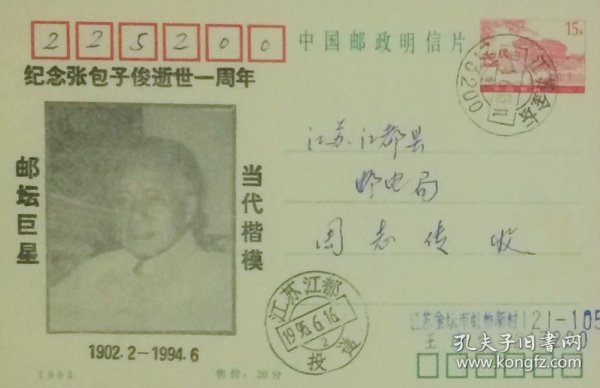 225200
中国邮政明信片
15分
纪念张包子俊逝世一周年
邮坛巨星
当代楷模
1902.2－1994.6
江苏江都县
邮电局
周志传 收
江苏金坛
江苏江都
1995.6.16
2
投递
江苏金坛市虹桥新村121-105
王
1993
售价：20分
孔夫子旧书网
kongfz.com